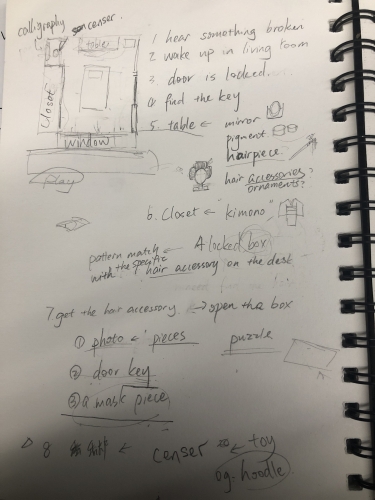 calligraphy censer.
table
closet
window
play
1. hear something broken
2. wake up in living room
3. door is locked
4. find the key
5. table ← mirror
pigment
hairpiece.
hair accessories?
ornaments?
6. Closet ← "kimono"
A locked box
pattern match ←
with the specific
hair accessory on the desk
7. get the hair accessory → open the box
① photo ← pieces
puzzle
② door key
③ a mask piece
8 ← censer ← toy
og. hoodle